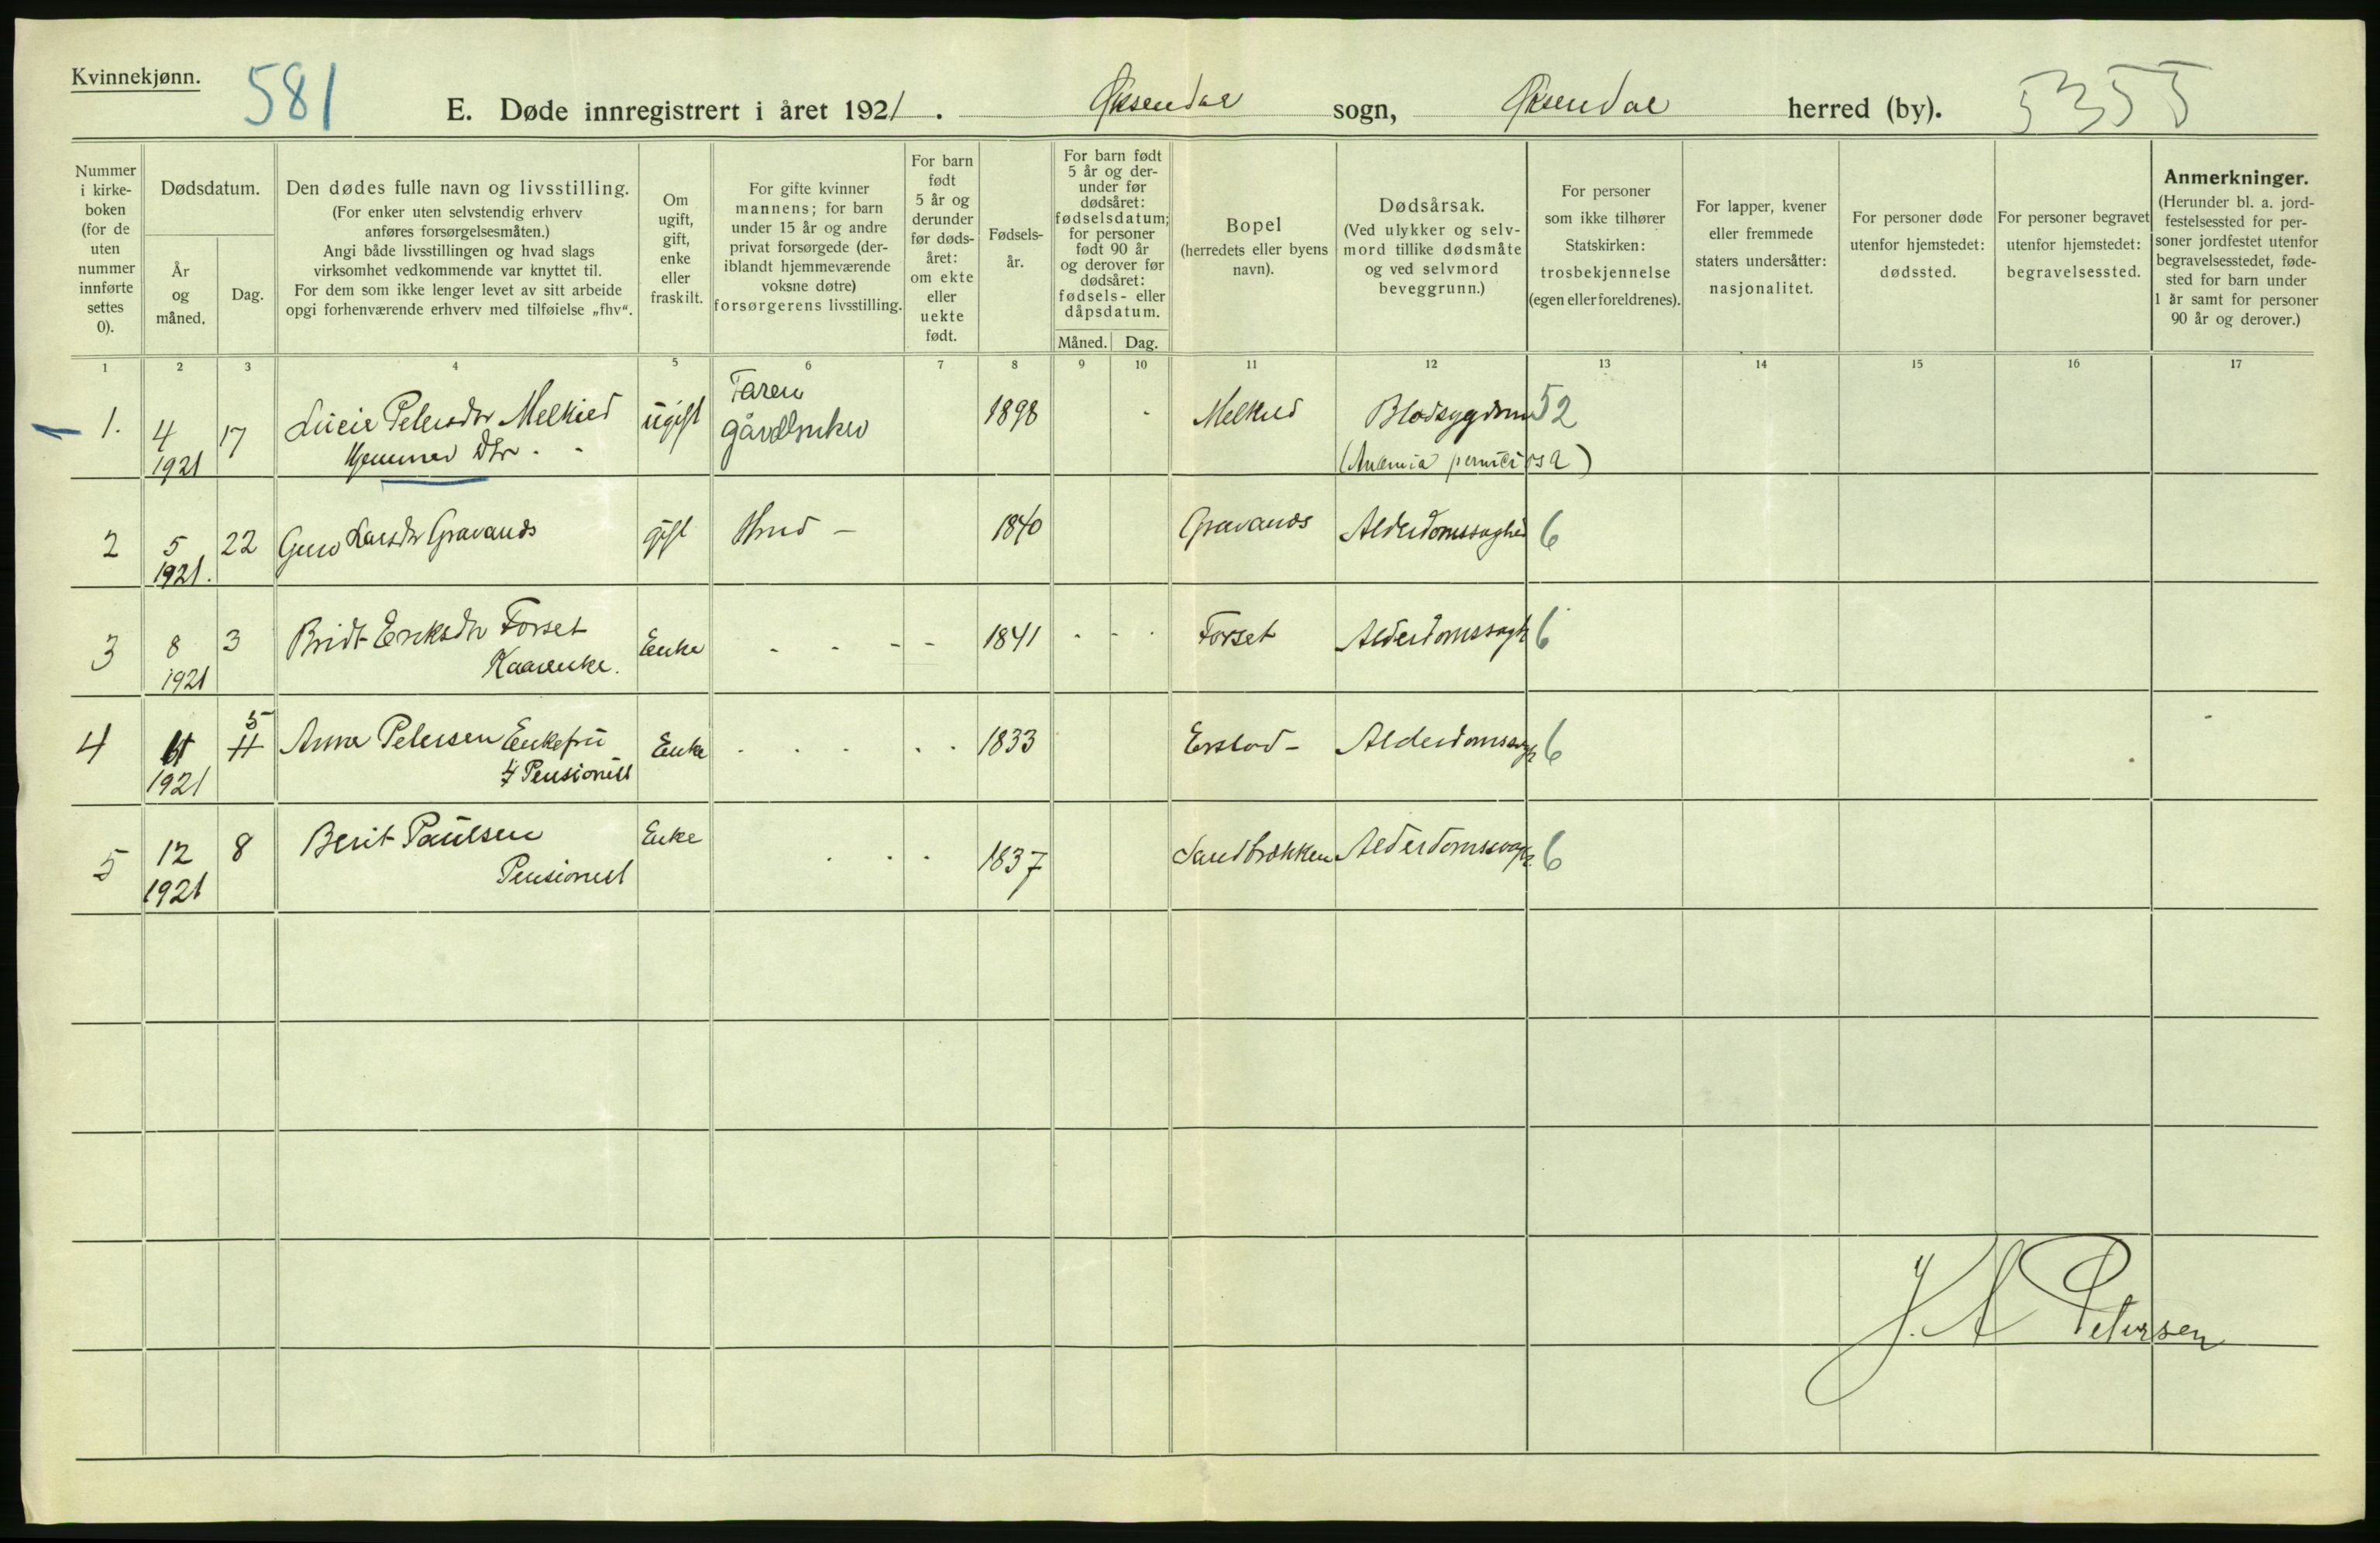 Kvinnekjønn.
581
E. Døde innregistrert i året 1921.
Øksendal sogn, Øksendal herred (by).
5355
Nummer i kirke-
boken
(for de
uten
nummer
innførte
settes
0).
Dødsdatum.
År
og
måned.
Dag.
Den dødes fulle navn og livsstilling.
(For enker uten selvstendig erhverv
anføres forsørgelsesmåten.)
Angi både livsstillingen og hvad slags
virksomhet vedkommende var knyttet til.
For dem som ikke lenger levet av sitt arbeide
opgi forhenværende erhverv med tilføielse „fhv“.
Om
ugift,
gift,
enke
eller
fraskilt.
For gifte kvinner
mannens; for barn
under 15 år og andre
privat forsørgede (der-
iblandt hjemmeværende
voksne døtre)
forsørgerens livsstilling.
For barn
født
5 år og
derunder
før døds-
året:
om ekte
eller
uekte
født.
Fødsels-
år.
For barn født
5 år og der-
under før
dødsåret:
fødselsdatum;
for personer
født 90 år
og derover før
dødsåret:
fødsels- eller
dåpsdatum.
Måned. Dag.
Bopel
(herredets eller byens
navn).
Dødsårsak.
(Ved ulykker og selv-
mord tillike dødsmåte
og ved selvmord
beveggrunn.)
For personer
som ikke tilhører
Statskirken:
trosbekjennelse
(egen eller foreldrenes).
For lapper, kvener
eller fremmede
staters undersåtter:
nasjonalitet.
For personer døde
utenfor hjemstedet:
dødssted.
For personer begravet
utenfor hjemstedet:
begravelsessted.
Anmerkninger.
(Herunder bl. a. jord-
festelsessted for per-
soner jordfestet utenfor
begravelsesstedet, føde-
sted for barn under
1 år samt for personer
90 år og derover.)
1 2 3 4 5 6 7 8 9 10 11 12 13 14 15 16 17
1. 4 17 Lucie Petersdtr Melkild ugift Faren 1898 Blodsygdom 52
1921 gårdbruker (Anæmia perniciosa)
2 5 22 Guro Larsdtr Gravands gift 1840 Gravands Alderdomssvaghed 6
1921.
3 8 3 Bridt Eriksdtr Forset Enke - - - - 1841 - - - Forset Alderdomssvagh 6
1921 Kaarenke.
4 5 Anna Petersen Enkefru Enke 1833 Alderdomssvagh 6
1921 Pensionist
5 12 8 Berit Paulsen Enke 1837 Sandbrækken Alderdomssvagh. 6
1921 Pensionist
J. A Petersen